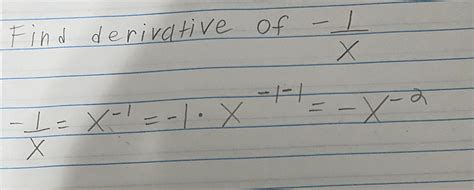 Find derivative of -1/x
-1/x = x^-1 = -1 · x^-1-1 = -x^-2